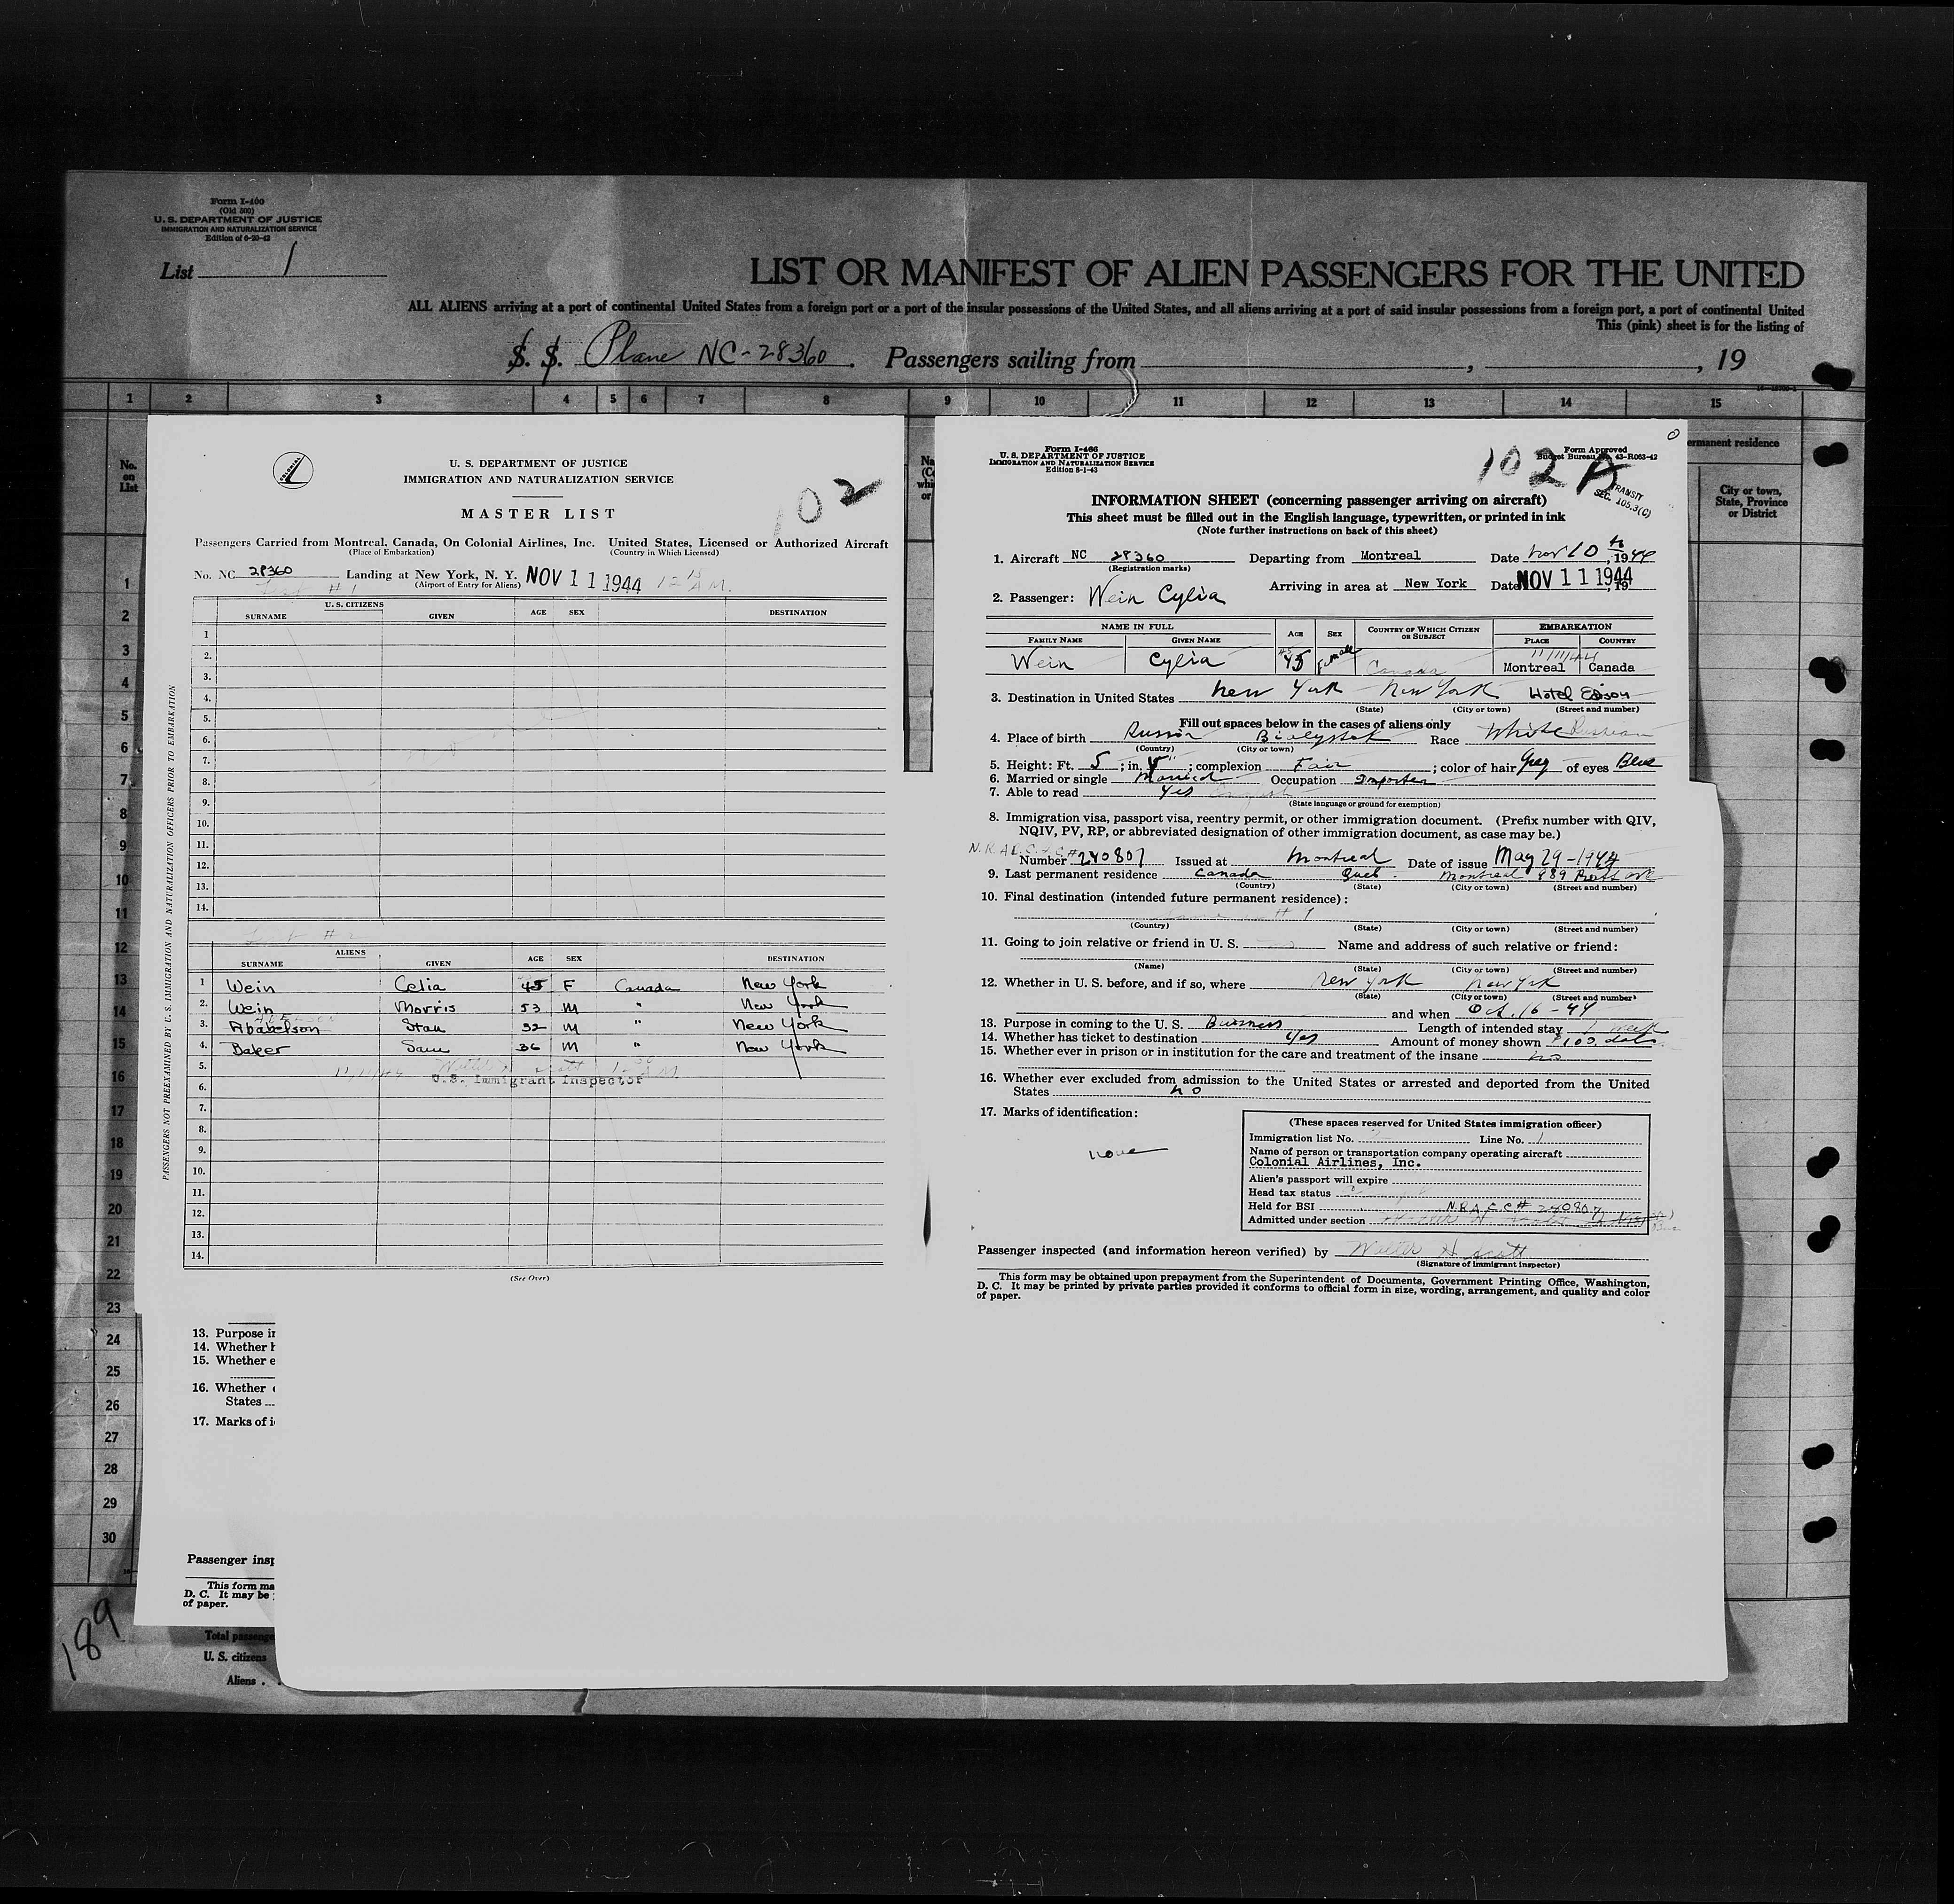 Form I-400
(Old 500)
U. S. DEPARTMENT OF JUSTICE
IMMIGRATION AND NATURALIZATION SERVICE
Edition of 6-20-42
List 1
LIST OR MANIFEST OF ALIEN PASSENGERS FOR THE UNITED
ALL ALIENS arriving at a port of continental United States from a foreign port or a port of the insular possessions of the United States, and all aliens arriving at a port of said insular possessions from a foreign port, a port of continental United
This (pink) sheet is for the listing of
S. S. Plane NC-28360. Passengers sailing from , , 19
1 2 3 4 5 6 7 8 9 10 11 12 13 14 15
No. on List
ermanent residence
City or town, State, Province or District
COLONIAL
U. S. DEPARTMENT OF JUSTICE
IMMIGRATION AND NATURALIZATION SERVICE
MASTER LIST
102
Passengers Carried from Montreal, Canada, On Colonial Airlines, Inc. United States, Licensed or Authorized Aircraft
(Place of Embarkation) (Country in Which Licensed)
No. NC 28360 Landing at New York, N. Y. NOV 11 1944 12 15 A.M.
(Airport of Entry for Aliens)
U. S. CITIZENS
SURNAME GIVEN AGE SEX DESTINATION
1
2.
3.
4.
5.
6.
7.
8.
9.
10.
11.
12.
13.
14.
ALIENS
SURNAME GIVEN AGE SEX DESTINATION
1 Wein Celia 45 F Canada New York
2. Wein Morris 53 M " New York
3. Ababelson Stan 32 M " New York
4. Baker Sam 36 M " New York
5. 11/11/44
U.S. Immigrant Inspector
6.
7.
8.
9.
10.
11.
12.
13.
14.
(See Over)
PASSENGERS NOT PREEXAMINED BY U. S. IMMIGRATION AND NATURALIZATION OFFICERS PRIOR TO EMBARKATION
1
2
3
4
5
6
7
8
9
10
11
12
13
14
15
16
17
18
19
20
21
22
23
24
25
26
27
28
29
30
13. Purpose in
14. Whether h
15. Whether e
16. Whether
States
17. Marks of i
Passenger insp
This form ma
D. C. It may be
of paper.
Total passenge
U. S. citizens
Aliens .
189
Form I-466
U. S. DEPARTMENT OF JUSTICE
IMMIGRATION AND NATURALIZATION SERVICE
Edition 8-1-43
102 A
Form Approved
Budget Bureau No. 43-R063-42
TRANSIT
SEC. 105.3(C)
INFORMATION SHEET (concerning passenger arriving on aircraft)
This sheet must be filled out in the English language, typewritten, or printed in ink
(Note further instructions on back of this sheet)
1. Aircraft NC 28360 Departing from Montreal Date Nov 10 th, 1944
(Registration marks)
Arriving in area at New York Date NOV 11 1944, 19
2. Passenger: Wein Cylia
NAME IN FULL AGE SEX COUNTRY OF WHICH CITIZEN OR SUBJECT EMBARKATION
FAMILY NAME GIVEN NAME PLACE COUNTRY
11/11/44
Wein Cylia 45 Female Canada Montreal Canada
3. Destination in United States New York New York Hotel Edison
(State) (City or town) (Street and number)
Fill out spaces below in the cases of aliens only
4. Place of birth Russia Bialystok Race White Russian
(Country) (City or town)
5. Height: Ft. 5; in. 5"; complexion Fair; color of hair Grey of eyes Blue
6. Married or single Married Occupation Importer
7. Able to read Yes English
(State language or ground for exemption)
8. Immigration visa, passport visa, reentry permit, or other immigration document. (Prefix number with QIV,
NQIV, PV, RP, or abbreviated designation of other immigration document, as case may be.)
Number #240807 Issued at Montreal Date of issue May 29-1944
9. Last permanent residence Canada Queb. Montreal 889
(Country) (State) (City or town) (Street and number)
10. Final destination (intended future permanent residence):
(Country) (State) (City or town) (Street and number)
11. Going to join relative or friend in U. S. Name and address of such relative or friend:
(Name) (State) (City or town) (Street and number)
12. Whether in U. S. before, and if so, where New York New York
(State) (City or town) (Street and number)
and when Oct. 16-44
13. Purpose in coming to the U. S. Business Length of intended stay 1 week
14. Whether has ticket to destination Yes Amount of money shown $100 dols
15. Whether ever in prison or in institution for the care and treatment of the insane no
16. Whether ever excluded from admission to the United States or arrested and deported from the United
States no
17. Marks of identification:
none
(These spaces reserved for United States immigration officer)
Immigration list No. Line No. 1
Name of person or transportation company operating aircraft
Colonial Airlines, Inc.
Alien's passport will expire
Head tax status
Held for BSI N.R.A.C.C# 240807
Admitted under section
Passenger inspected (and information hereon verified) by Walter H Scott
(Signature of immigrant inspector)
This form may be obtained upon prepayment from the Superintendent of Documents, Government Printing Office, Washington,
D. C. It may be printed by private parties provided it conforms to official form in size, wording, arrangement, and quality and color
of paper.